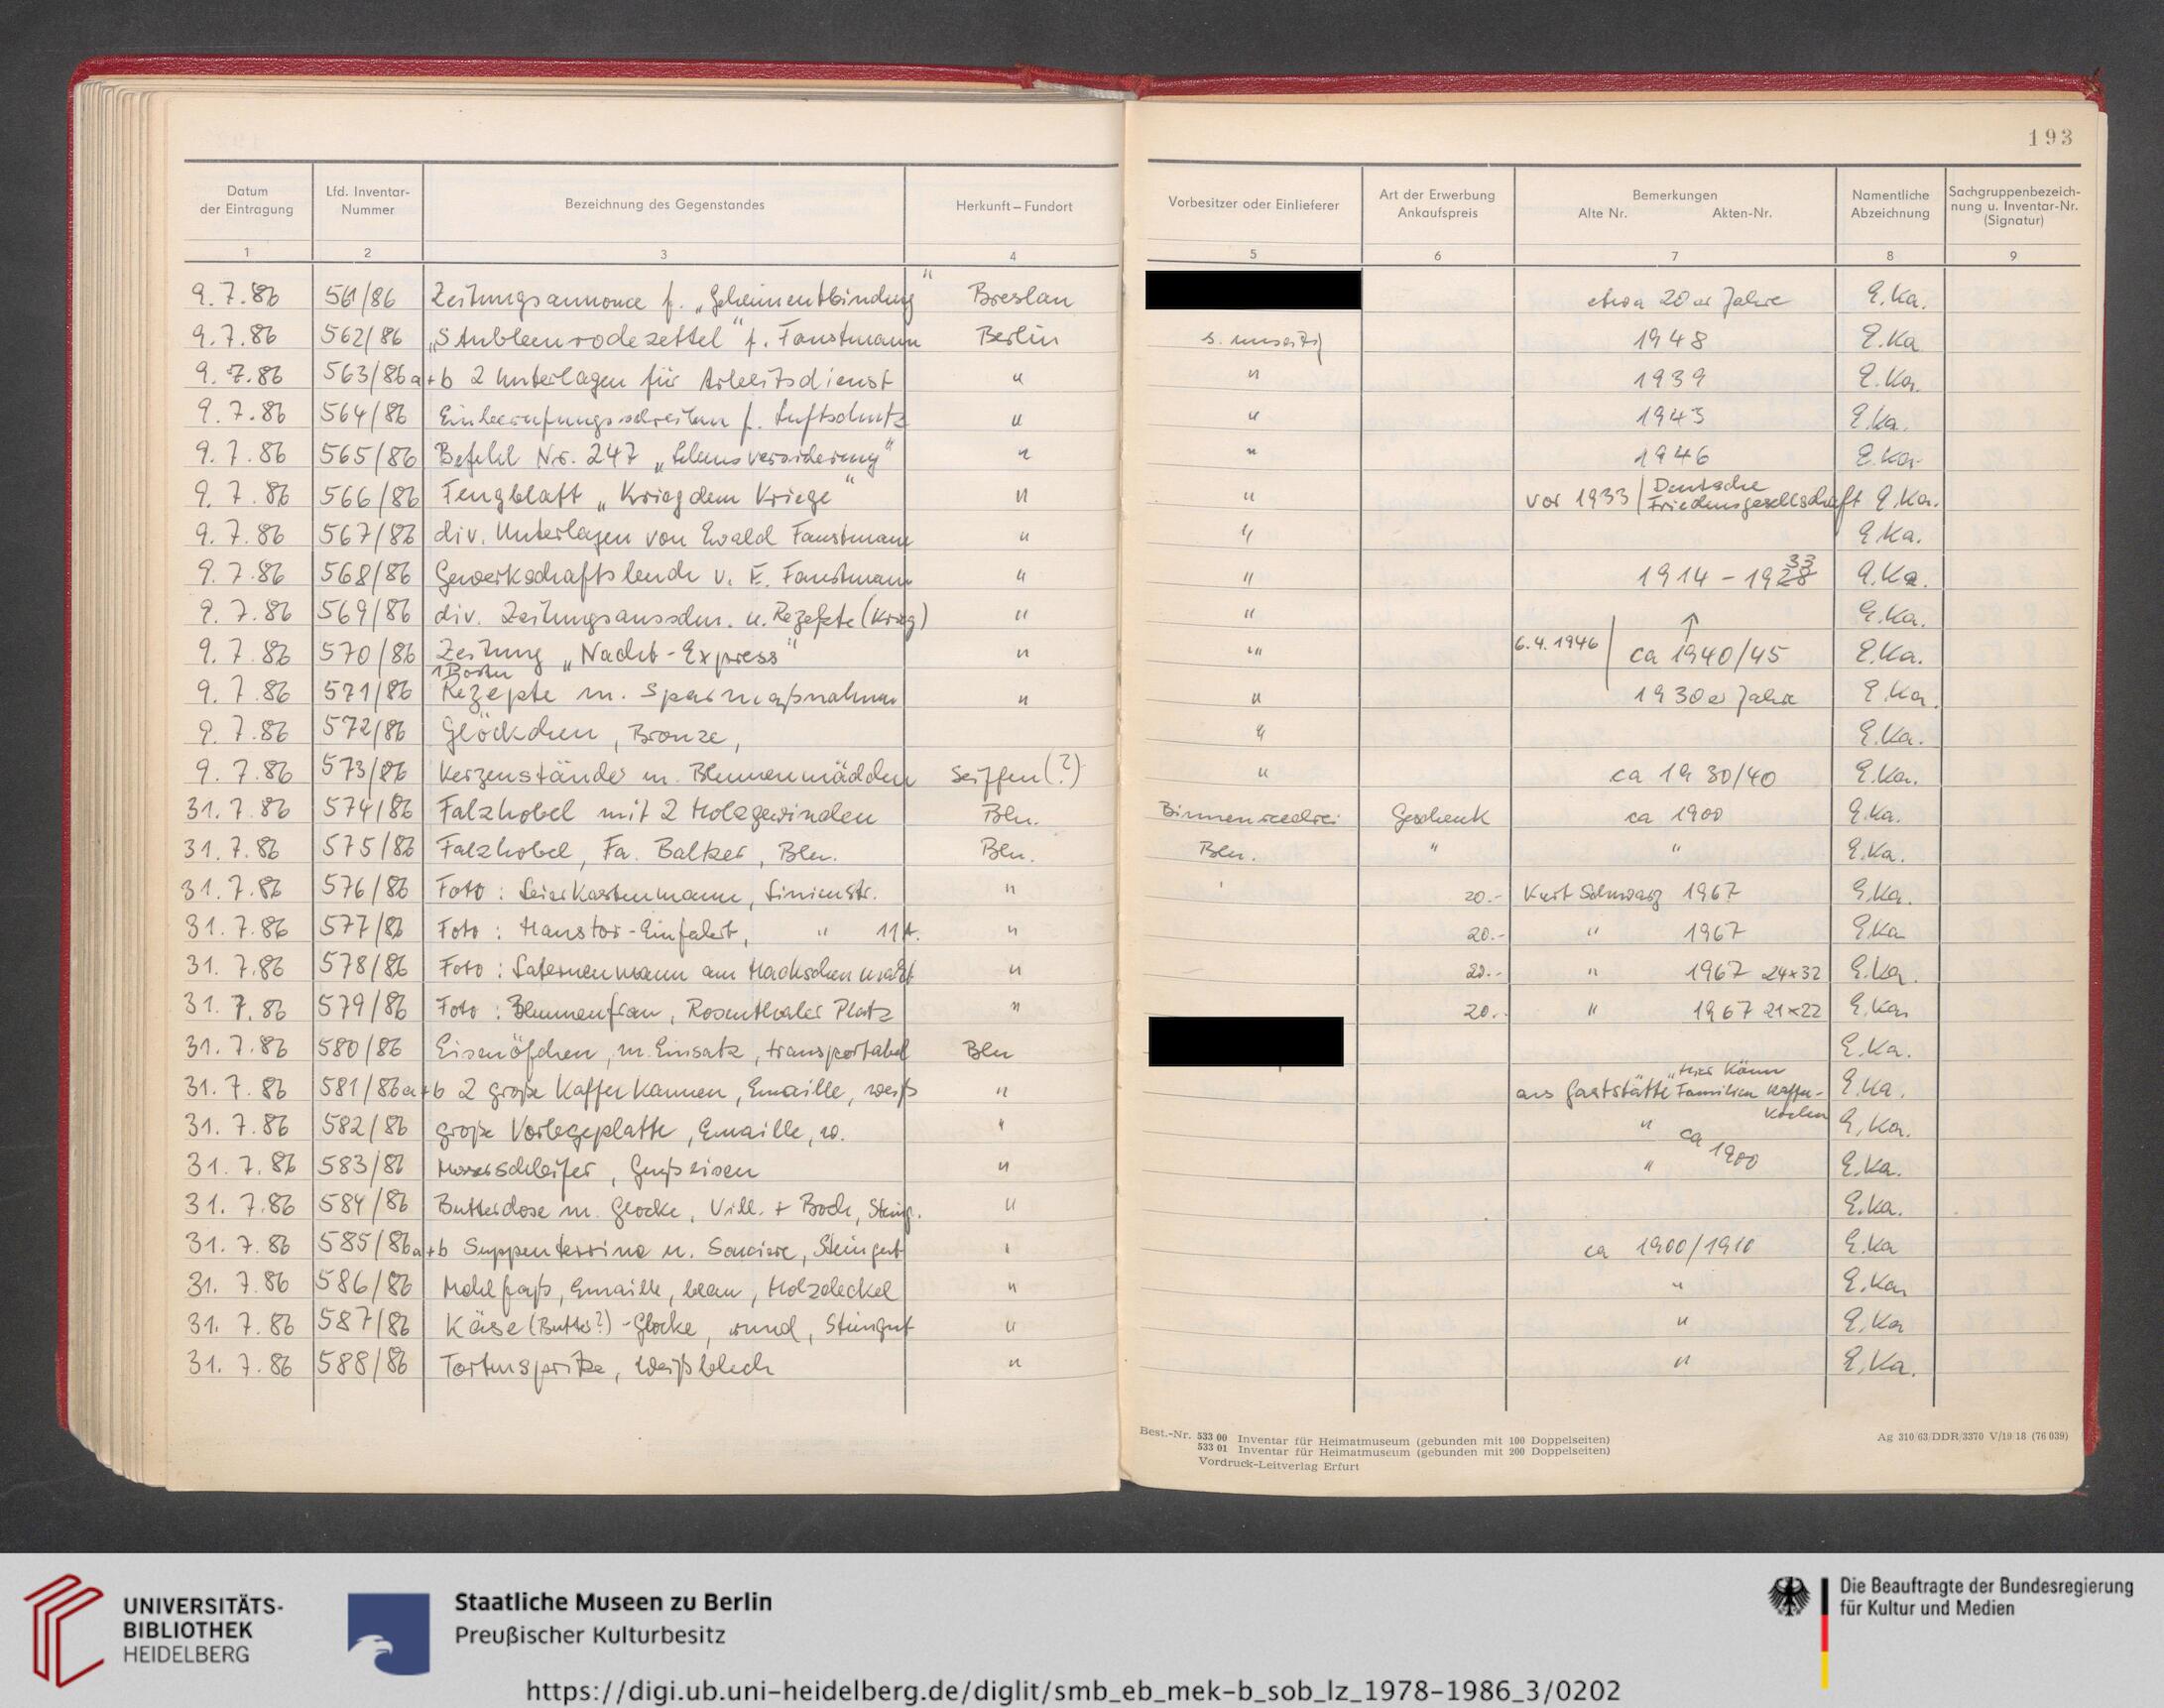 193
Datum der Eintragung | Lfd. Inventar-Nummer | Bezeichnung des Gegenstandes | Herkunft – Fundort | Vorbesitzer oder Einlieferer | Art der Erwerbung Ankaufspreis | Bemerkungen Alte Nr. Akten-Nr. | Namentliche Abzeichnung | Sachgruppenbezeichnung u. Inventar-Nr. (Signatur)
1 2 3 4 5 6 7 8 9
9.7.86 561/86 Zeitungsannonce f. „Geheimentbindung" Breslau etwa 20er Jahre E.Ka.
9.7.86 562/86 „Stubbenrodezettel" f. Faustmann Berlin s. umseitig 1948 E.Ka
9.7.86 563/86 a+b 2 Unterlagen für Arbeitsdienst " " 1939 E.Ka.
9.7.86 564/86 Einberufungsschreiben f. Luftschutz " " 1943 E.Ka.
9.7.86 565/86 Befehl Nr. 247 " " 1946 E.Ka.
9.7.86 566/86 „Krieg dem Kriege" " " vor 1933 | Deutsche Friedensgesellschaft E.Ka.
9.7.86 567/86 div. Unterlagen von Ewald Faustmann " " E.Ka.
9.7.86 568/86 v. E. Faustmann " " 1914 - 1928 33 E.Ka.
9.7.86 569/86 div. Zeitungsausschn. u. Rezepte (Krieg) " " ↑ E.Ka.
9.7.86 570/86 Zeitung „Nacht-Express" " " 6.4.1946 | ca 1940/45 E.Ka.
9.7.86 571/86 Rezepte m. Sparmaßnahmen " " 1930er Jahre E.Ka.
9.7.86 572/86 Glöckchen, Bronze, " E.Ka.
9.7.86 573/86 Kerzenständer m. Blumenmädchen Seiffen (?) " ca 1930/40 E.Ka.
31.7.86 574/86 Falzhobel mit 2 Holzgewinden Bln. Binnenreederei Geschenk ca 1900 E.Ka.
31.7.86 575/86 Falzhobel, Fa. Balzer, Bln. Bln. Bln. " " E.Ka.
31.7.86 576/86 Foto: Leierkastenmann, Linienstr. " ' 20.- Kurt Schwarz 1967 E.Ka.
31.7.86 577/86 Foto: Haustor-Einfahrt, " 11A. " 20.- " 1967 E.Ka
31.7.86 578/86 Foto: Laternenmann am Hackschen Markt " 20.- " 1967 24x32 E.Ka.
31.7.86 579/86 Foto: Blumenfrau, Rosenthaler Platz " 20.- " 1967 21x22 E.Ka.
31.7.86 580/86 Eisenöfchen, m. Einsatz, transportabel Bln E.Ka.
31.7.86 581/86 a+b 2 große Kaffeekannen, Emaille, weiß " aus Gaststätte „Hier Können Familien Kaffee-kochen E.Ka.
31.7.86 582/86 große Vorlegeplatte, Emaille, w. " " ca 1900 E.Ka.
31.7.86 583/86 Messerschleifer, Gußeisen " " E.Ka.
31.7.86 584/86 Butterdose m. Glocke, Vill. + Boch, Steing. " E.Ka.
31.7.86 585/86 a+b Suppenterrine u. Sauciere, Steingut " ca 1900/1910 E.Ka
31.7.86 586/86 Mehlfaß, Emaille, blau, Holzdeckel " " E.Ka.
31.7.86 587/86 Käse (Butter?)-Glocke, rund, Steingut " " E.Ka
31.7.86 588/86 Tortenspritze, Weißblech " " E.Ka.
Best.-Nr. 533 00 Inventar für Heimatmuseum (gebunden mit 100 Doppelseiten)
533 01 Inventar für Heimatmuseum (gebunden mit 200 Doppelseiten)
Vordruck-Leitverlag Erfurt
Ag 310/63/DDR/3370 V/19/18 (76 039)
UNIVERSITÄTS-
BIBLIOTHEK
HEIDELBERG
Staatliche Museen zu Berlin
Preußischer Kulturbesitz
Die Beauftragte der Bundesregierung
für Kultur und Medien
https://digi.ub.uni-heidelberg.de/diglit/smb_eb_mek-b_sob_lz_1978-1986_3/0202